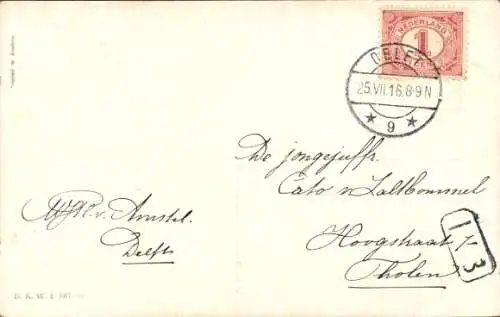 NEDERLAND
1
CENT
DELFT
25.VII.16.8-9N
★ 9 ★
De jongejuffr.
Cato v Zaltbommel
Hoogstraat
Tholen
v. Amstel.
Delft
1
3
B. K. W. I